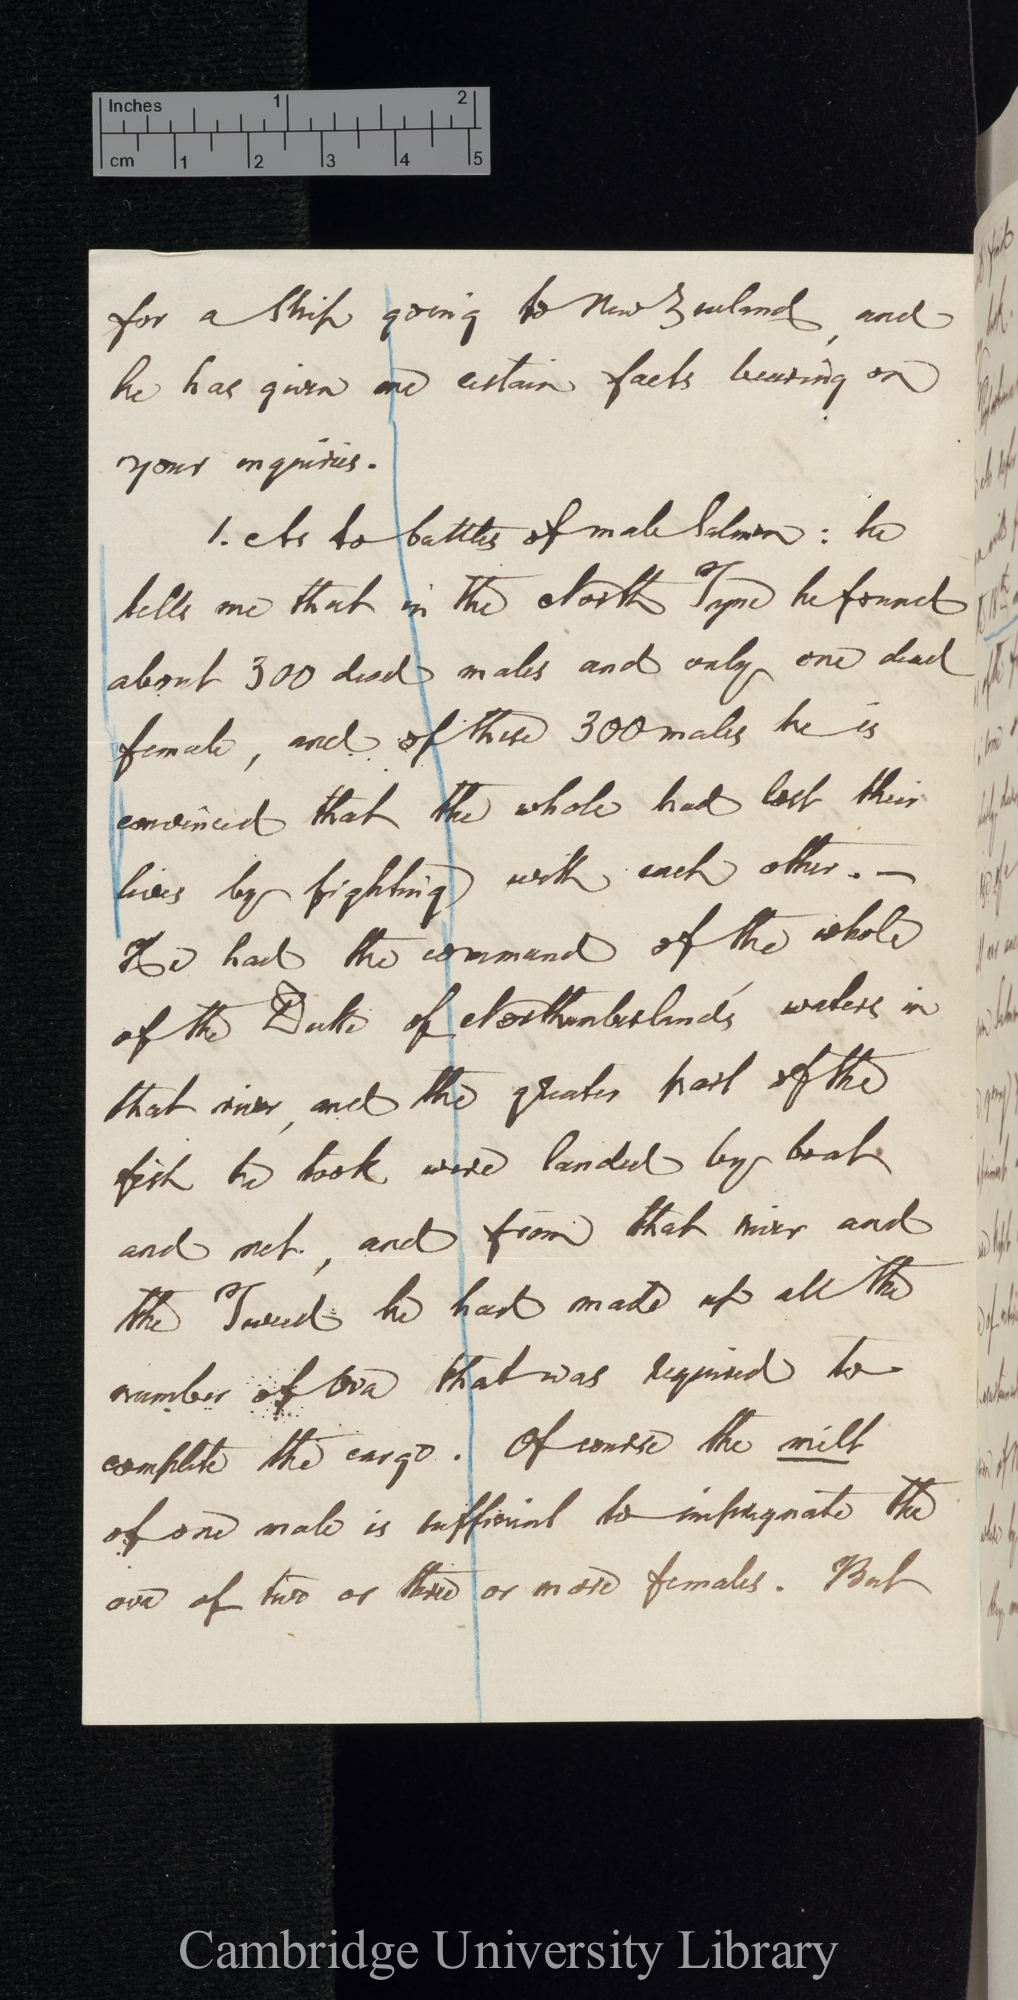 Inches 1 2
cm 1 2 3 4 5
for a Ship going to New Zealand, and
he has given me certain facts bearing on
your inquiries.
1. As to battles of male Salmon: he
tells me that in the North Tyne he found
about 300 dead males and only one dead
female, and of these 300 males he is
convinced that the whole had lost their
lives by fighting with each other. —
He had the command of the whole
of the Duke of Northumberland's waters in
that river, and the greater part of the
fish he took were landed by boat
and net, and from that river and
the Tweed he had made up all the
number of ova that was required to
complete the cargo. Of course the milt
of one male is sufficient to impregnate the
ova of two or three or more females. But
Cambridge University Library